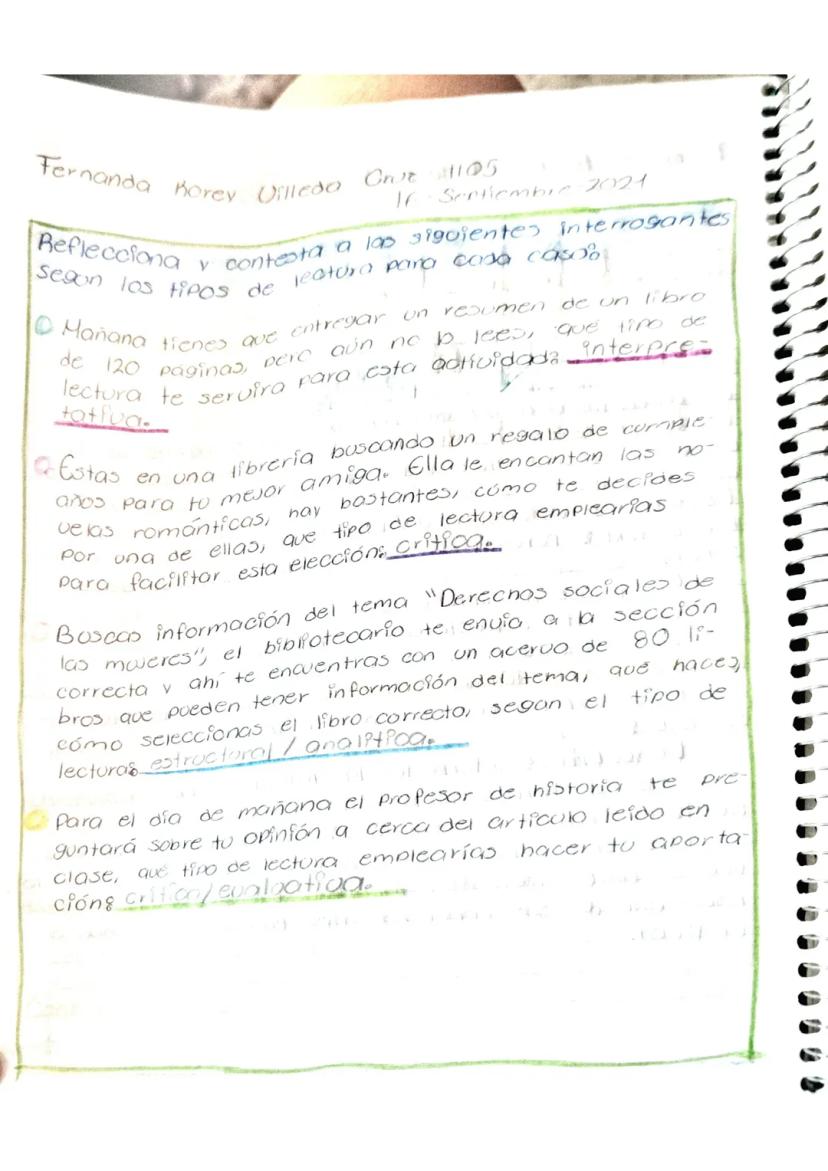 Fernanda Korey Villeda Cruz 1105
Septiembre 2021
Reflecciona y contesta a las siguientes interrogantes
segun los tipos de lectura para cada caso:
Mañana tienes que entregar un resumen de un libro
de 120 páginas, pero aún no lo lees, que tipo de
lectura te servira para esta actividad: interpre-
tativa.
Estas en una librería buscando un regalo de cumple
años para tu mejor amiga. Ella le encantan las no-
velas románticas, hay bastantes, cómo te decides
por una de ellas, que tipo de lectura emplearias
para facilitar esta elección: crítica.
Buscas información del tema "Derechos sociales de
las mujeres", el bibliotecario te envía a la sección
correcta y ahí te encuentras con un acervo de 80 li-
bros que pueden tener información del tema, qué haces,
cómo seleccionas el libro correcto, segun el tipo de
lectura: estructural / analítica.
Para el día de mañana el profesor de historia te pre-
guntará sobre tu opinión a cerca del articulo leído en
clase, qué tipo de lectura emplearías hacer tu aporta-
ción: critica/evaluativa.